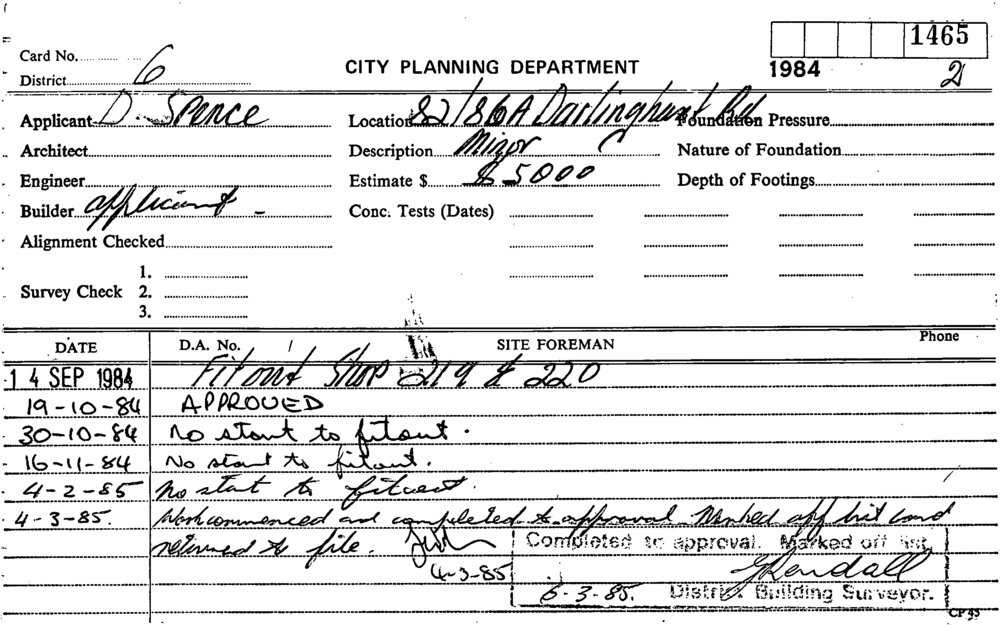 1465
Card No.
CITY PLANNING DEPARTMENT
1984 2
District 6
Applicant D. Spence Location 82/86A Darlinghurst Rd Foundation Pressure
Architect Description Minor C Nature of Foundation
Engineer Estimate $ $5000 Depth of Footings
Builder applicant - Conc. Tests (Dates)
Alignment Checked
1.
Survey Check 2.
3.
DATE D.A. No. SITE FOREMAN Phone
14 SEP 1984 Fitout Shop 219 & 220
19-10-84 APPROVED
30-10-84 No start to fitout.
16-11-84 No start to fitout.
4-2-85 No start to fitout.
4-3-85. Work commenced and completed to approval Marked off list card
returned to file.
4-3-85
Completed to approval. Marked off list.
6-3-85. District Building Surveyor.
CP 45